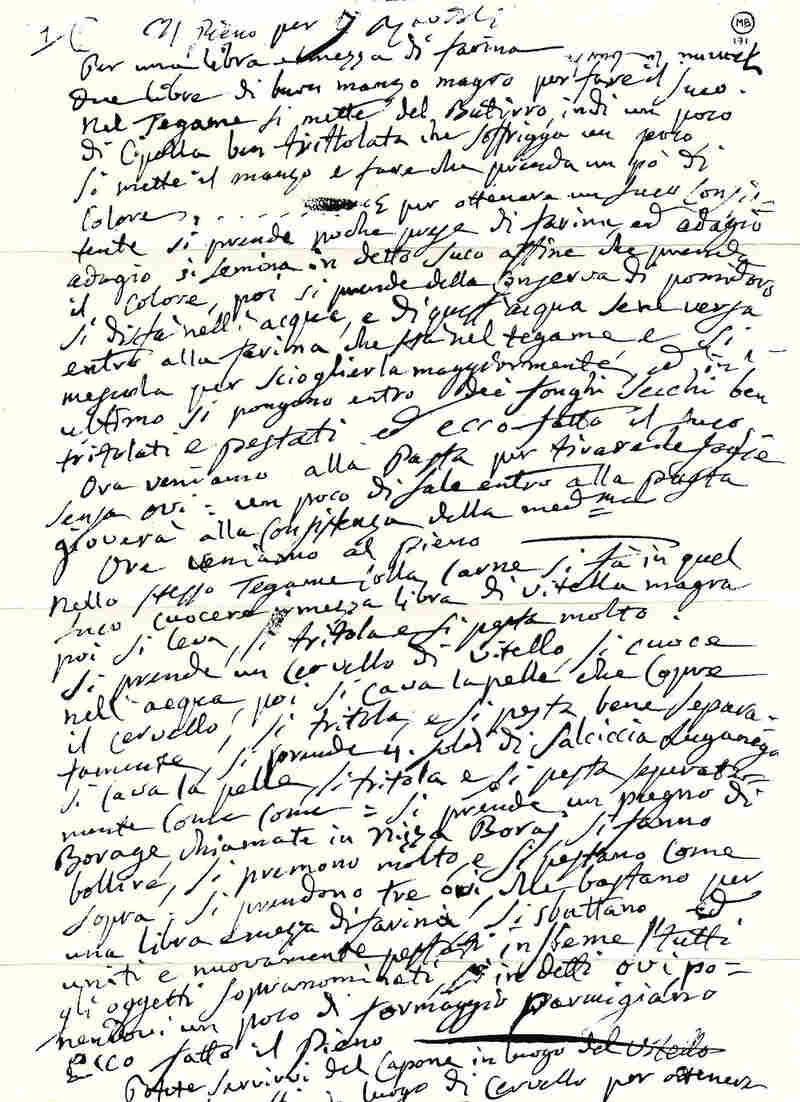 MB
171
Il Pieno per i Ravioli
Per una libra e mezza di farina
due libre di buon manzo magro per fare il suco.
Nel Tegame si mette del Butirro, indi un poco
di Cipolla ben trittolata che soffrigga un poco
si mette il manzo e fare che prenda un pò di
colore, E per ottenere un suco Consis-
tente si prende poche prese di farina, ed adagio
adagio si semina in detto suco affine che prenda
il colore, poi si prende della Conserva di pomidoro
si disfà nell'acqua, e di quest'acqua se ne versa
entro alla farina che stà nel tegame e si
mescola per scioglierla maggiormente, ed in
ultimo si pongono entro dei fonghi secchi ben
tritolati e pestati ed ecco fatto il suco.
Ora veniamo alla Pasta per tirare le foglie
senza ovi = un poco di sale entro alla pasta
gioverà alla Consistenza della medma
Ora veniamo al Pieno
Nello stesso Tegame colla Carne si fà in quel
suco cuocere mezza libra di vitella magra
poi si leva, si tritola e si pesta molto.
Si prende un cervello di vitello, si cuoce
nell'acqua, poi si cava la pelle che copre
il cervello, si tritola, e si pesta bene separa-
tamente, si prende 4. soldi di Salciccia Luganega
si cava la pelle, si tritola e si pesta separata-
mente come come = si prende un pugno di
Borage, chiamate in Nizza Boraj si fanno
bollire, si premono molto, e si pestano come
sopra. si prendono tre ovi, che bastano per
una libra e mezza di farina, si sbattano ed
uniti e nuovamente pestati insieme tutti
gli oggetti sopranominati in detti ovi po=
nendovi un poco di formaggio Parmigiano
Ecco fatto il Pieno
Potete servirvi del Capone in luogo del vitello
luogo di Cervello per ottenere